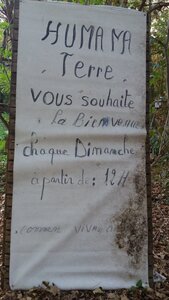 HUMA MA
Terre
VOUS souhaite
la Bienvenue
chaque Dimanche
à partir de : 12H